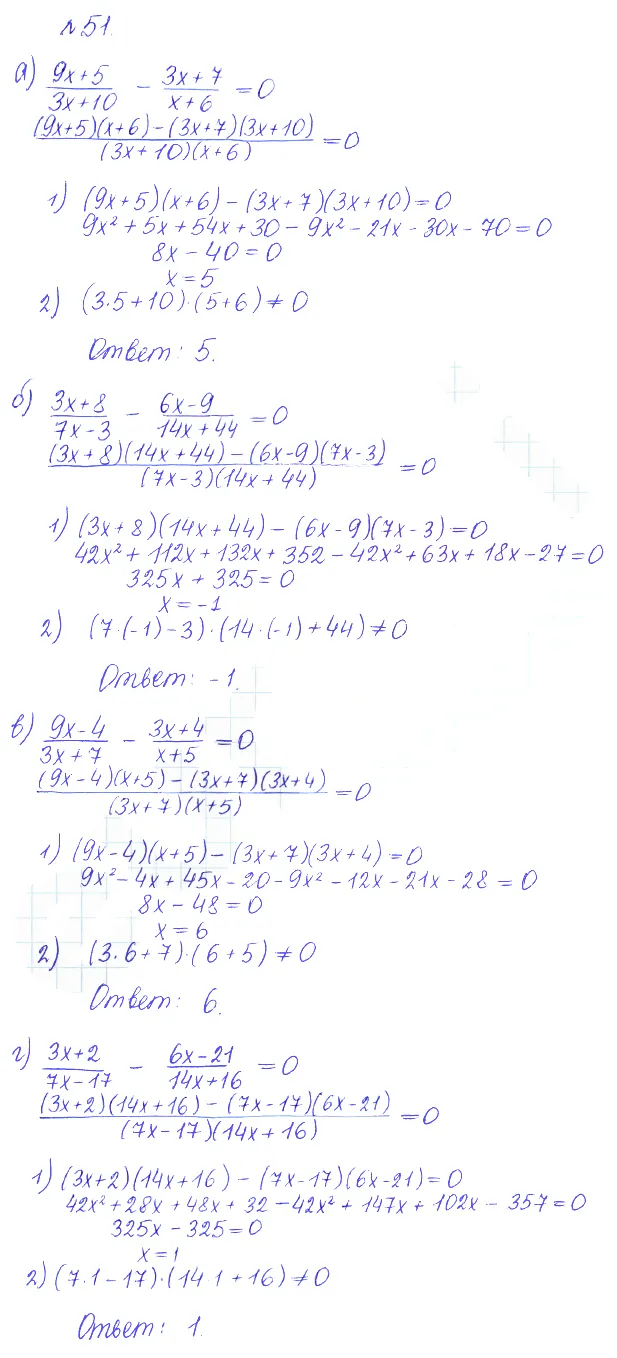 №51.
а) (9x+5)/(3x+10) - (3x+7)/(x+6) = 0
((9x+5)(x+6)-(3x+7)(3x+10))/((3x+10)(x+6)) = 0
1) (9x+5)(x+6)-(3x+7)(3x+10)=0
9x²+5x+54x+30-9x²-21x-30x-70=0
8x-40=0
x=5
2) (3·5+10)·(5+6)≠0
Ответ: 5.
б) (3x+8)/(7x-3) - (6x-9)/(14x+44) = 0
((3x+8)(14x+44)-(6x-9)(7x-3))/((7x-3)(14x+44)) = 0
1) (3x+8)(14x+44)-(6x-9)(7x-3)=0
42x²+112x+132x+352-42x²+63x+18x-27=0
325x+325=0
x=-1
2) (7·(-1)-3)·(14·(-1)+44)≠0
Ответ: -1.
в) (9x-4)/(3x+7) - (3x+4)/(x+5) = 0
((9x-4)(x+5)-(3x+7)(3x+4))/((3x+7)(x+5)) = 0
1) (9x-4)(x+5)-(3x+7)(3x+4)=0
9x²-4x+45x-20-9x²-12x-21x-28=0
8x-48=0
x=6
2) (3·6+7)·(6+5)≠0
Ответ: 6.
г) (3x+2)/(7x-17) - (6x-21)/(14x+16) = 0
((3x+2)(14x+16)-(7x-17)(6x-21))/((7x-17)(14x+16)) = 0
1) (3x+2)(14x+16)-(7x-17)(6x-21)=0
42x²+28x+48x+32-42x²+147x+102x-357=0
325x-325=0
x=1
2) (7·1-17)·(14 1+16)≠0
Ответ: 1.